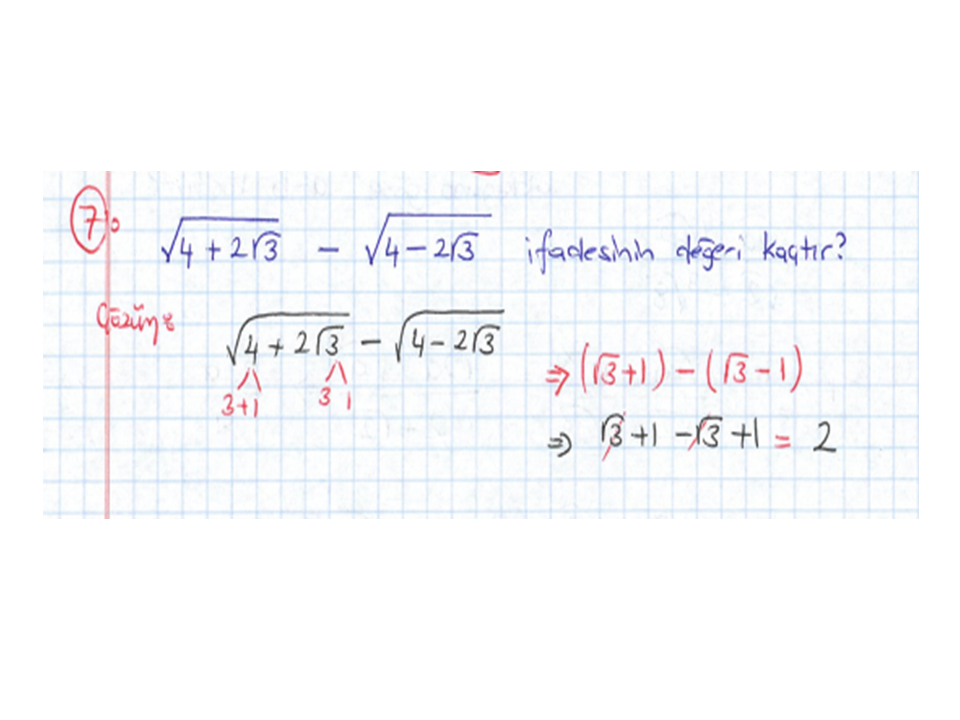 7:
√(4 + 2√3) - √(4 - 2√3) ifadesinin değeri kaçtır?
Çözüm:
√(4 + 2√3) - √(4 - 2√3)
3+1 3 1
⇒ (√3+1) - (√3-1)
⇒ √3+1-√3+1 = 2